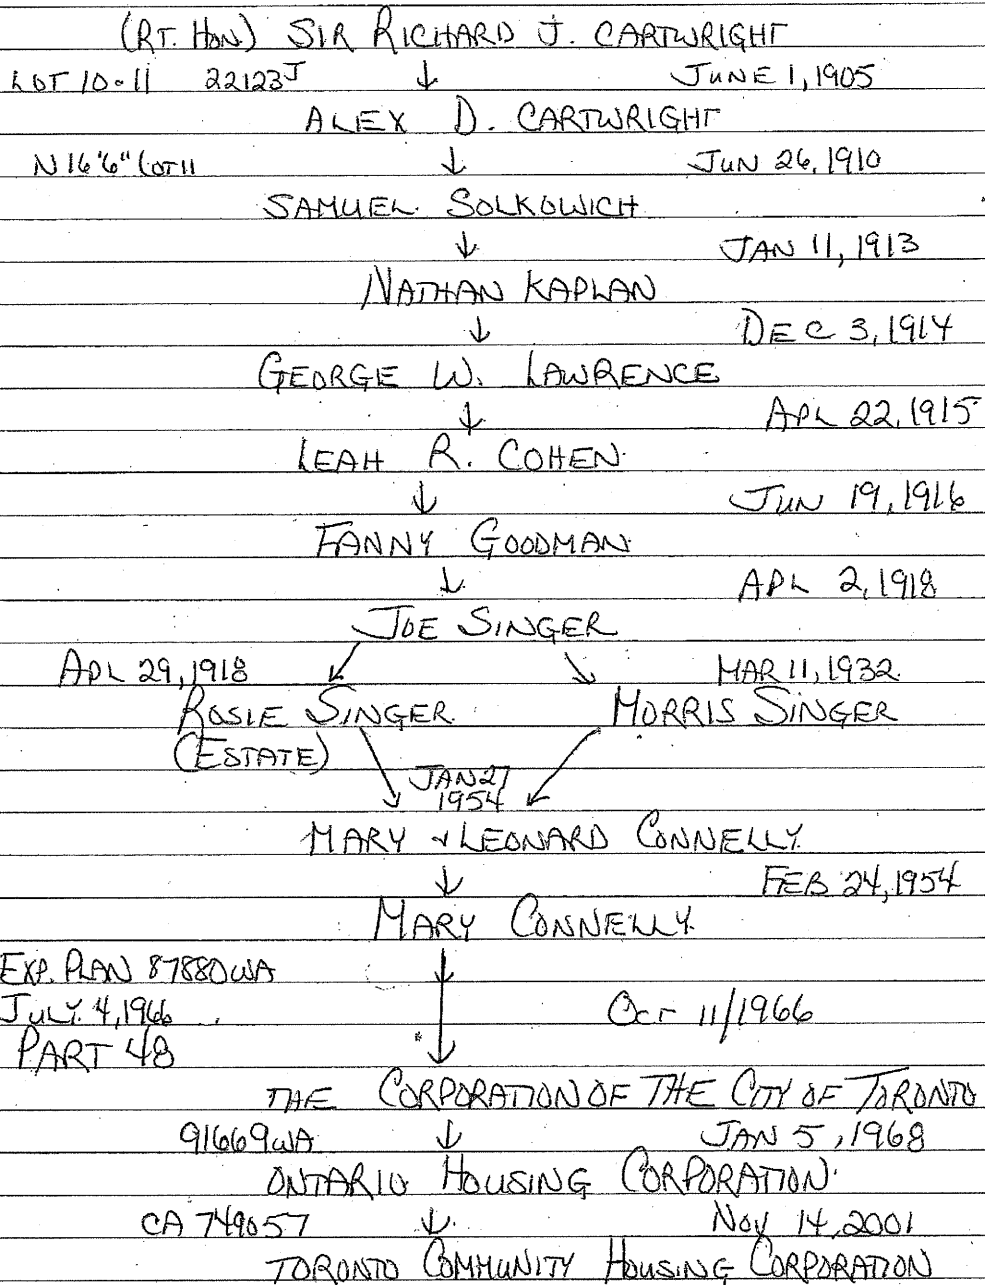 (RT. HON) SIR RICHARD J. CARTWRIGHT
LOT 10-11 22123J ↓ JUNE 1, 1905
ALEX D. CARTWRIGHT
N 16'6" LOT 11 ↓ JUN 26, 1910
SAMUEL SOLKOWICH
↓ JAN 11, 1913
NATHAN KAPLAN
↓ DEC 3, 1914
GEORGE W. LAWRENCE
↓ APL 22, 1915
LEAH R. COHEN
↓ JUN 19, 1916
FANNY GOODMAN
↓ APL 2, 1918
JOE SINGER
APL 29, 1918 ↙ ↘ MAR 11, 1932
ROSIE SINGER MORRIS SINGER
(ESTATE)
JAN 27
↘ 1954 ↙
MARY & LEONARD CONNELLY
↓ FEB 24, 1954
MARY CONNELLY
EXP. PLAN 87880WA ↓
JULY 4, 1966 OCT 11/1966
PART 48 ↓
THE CORPORATION OF THE CITY OF TORONTO
91669WA ↓ JAN 5, 1968
ONTARIO HOUSING CORPORATION
CA 749057 ↓ NOV 14, 2001
TORONTO COMMUNITY HOUSING CORPORATION